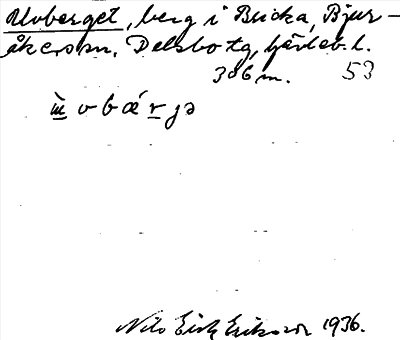 Ulvberget, berg i Bricka, Bjur-
åkers sn, Delsbo tg, Gävleb. l.
306 m. 53
Nils Erik Eriksson 1936.